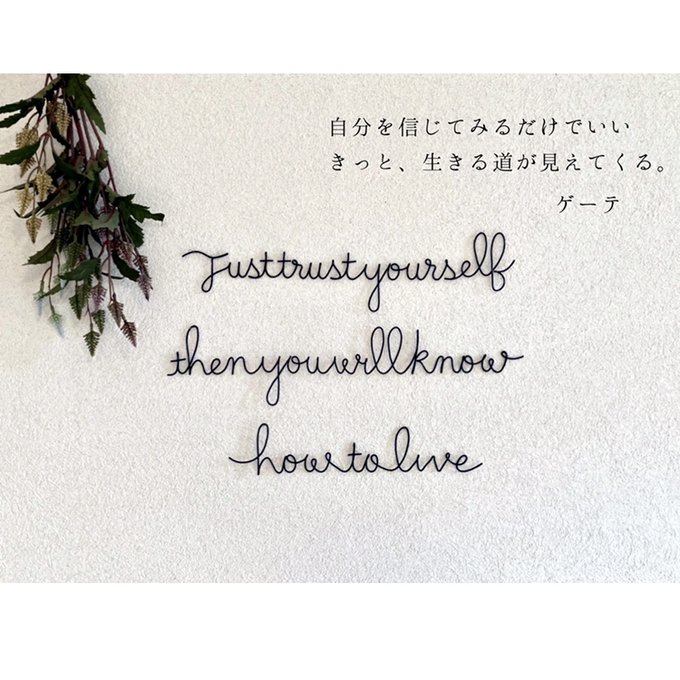 自分を信じてみるだけでいい
きっと、生きる道が見えてくる。
ゲーテ
Justtrustyourself
thenyouwillknow
howtolive